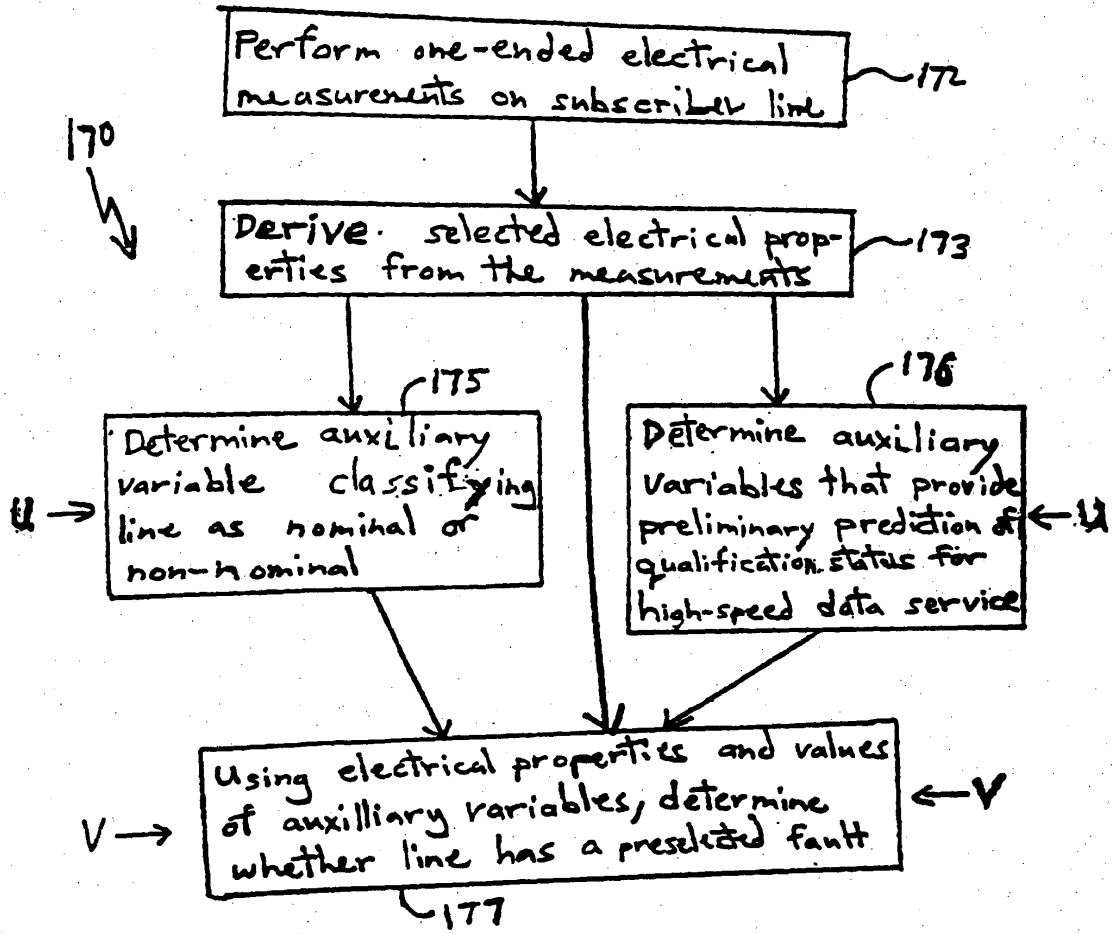 Perform one-ended electrical
measurements on subscriber line
172
170
Derive. selected electrical prop-
erties from the measurements
173
175
176
Determine auxiliary
variable classifying
line as nominal or
non-nominal
U
Determine auxiliary
variables that provide
preliminary prediction of
qualification status for
high-speed data service
U
Using electrical properties and values
of auxilliary variables, determine
whether line has a preselected fault
V
V
177